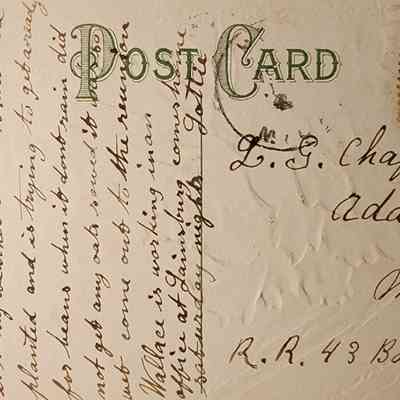 POST CARD
planted and is trying to get ready
for beans when it dont rain did
not get any oats sowed it
come out to the reunion
Wallace is working in an
office at Laingsburg comes home
saturday nights Lottie
L. G. Chap
Ada
R. R. 43 Bo